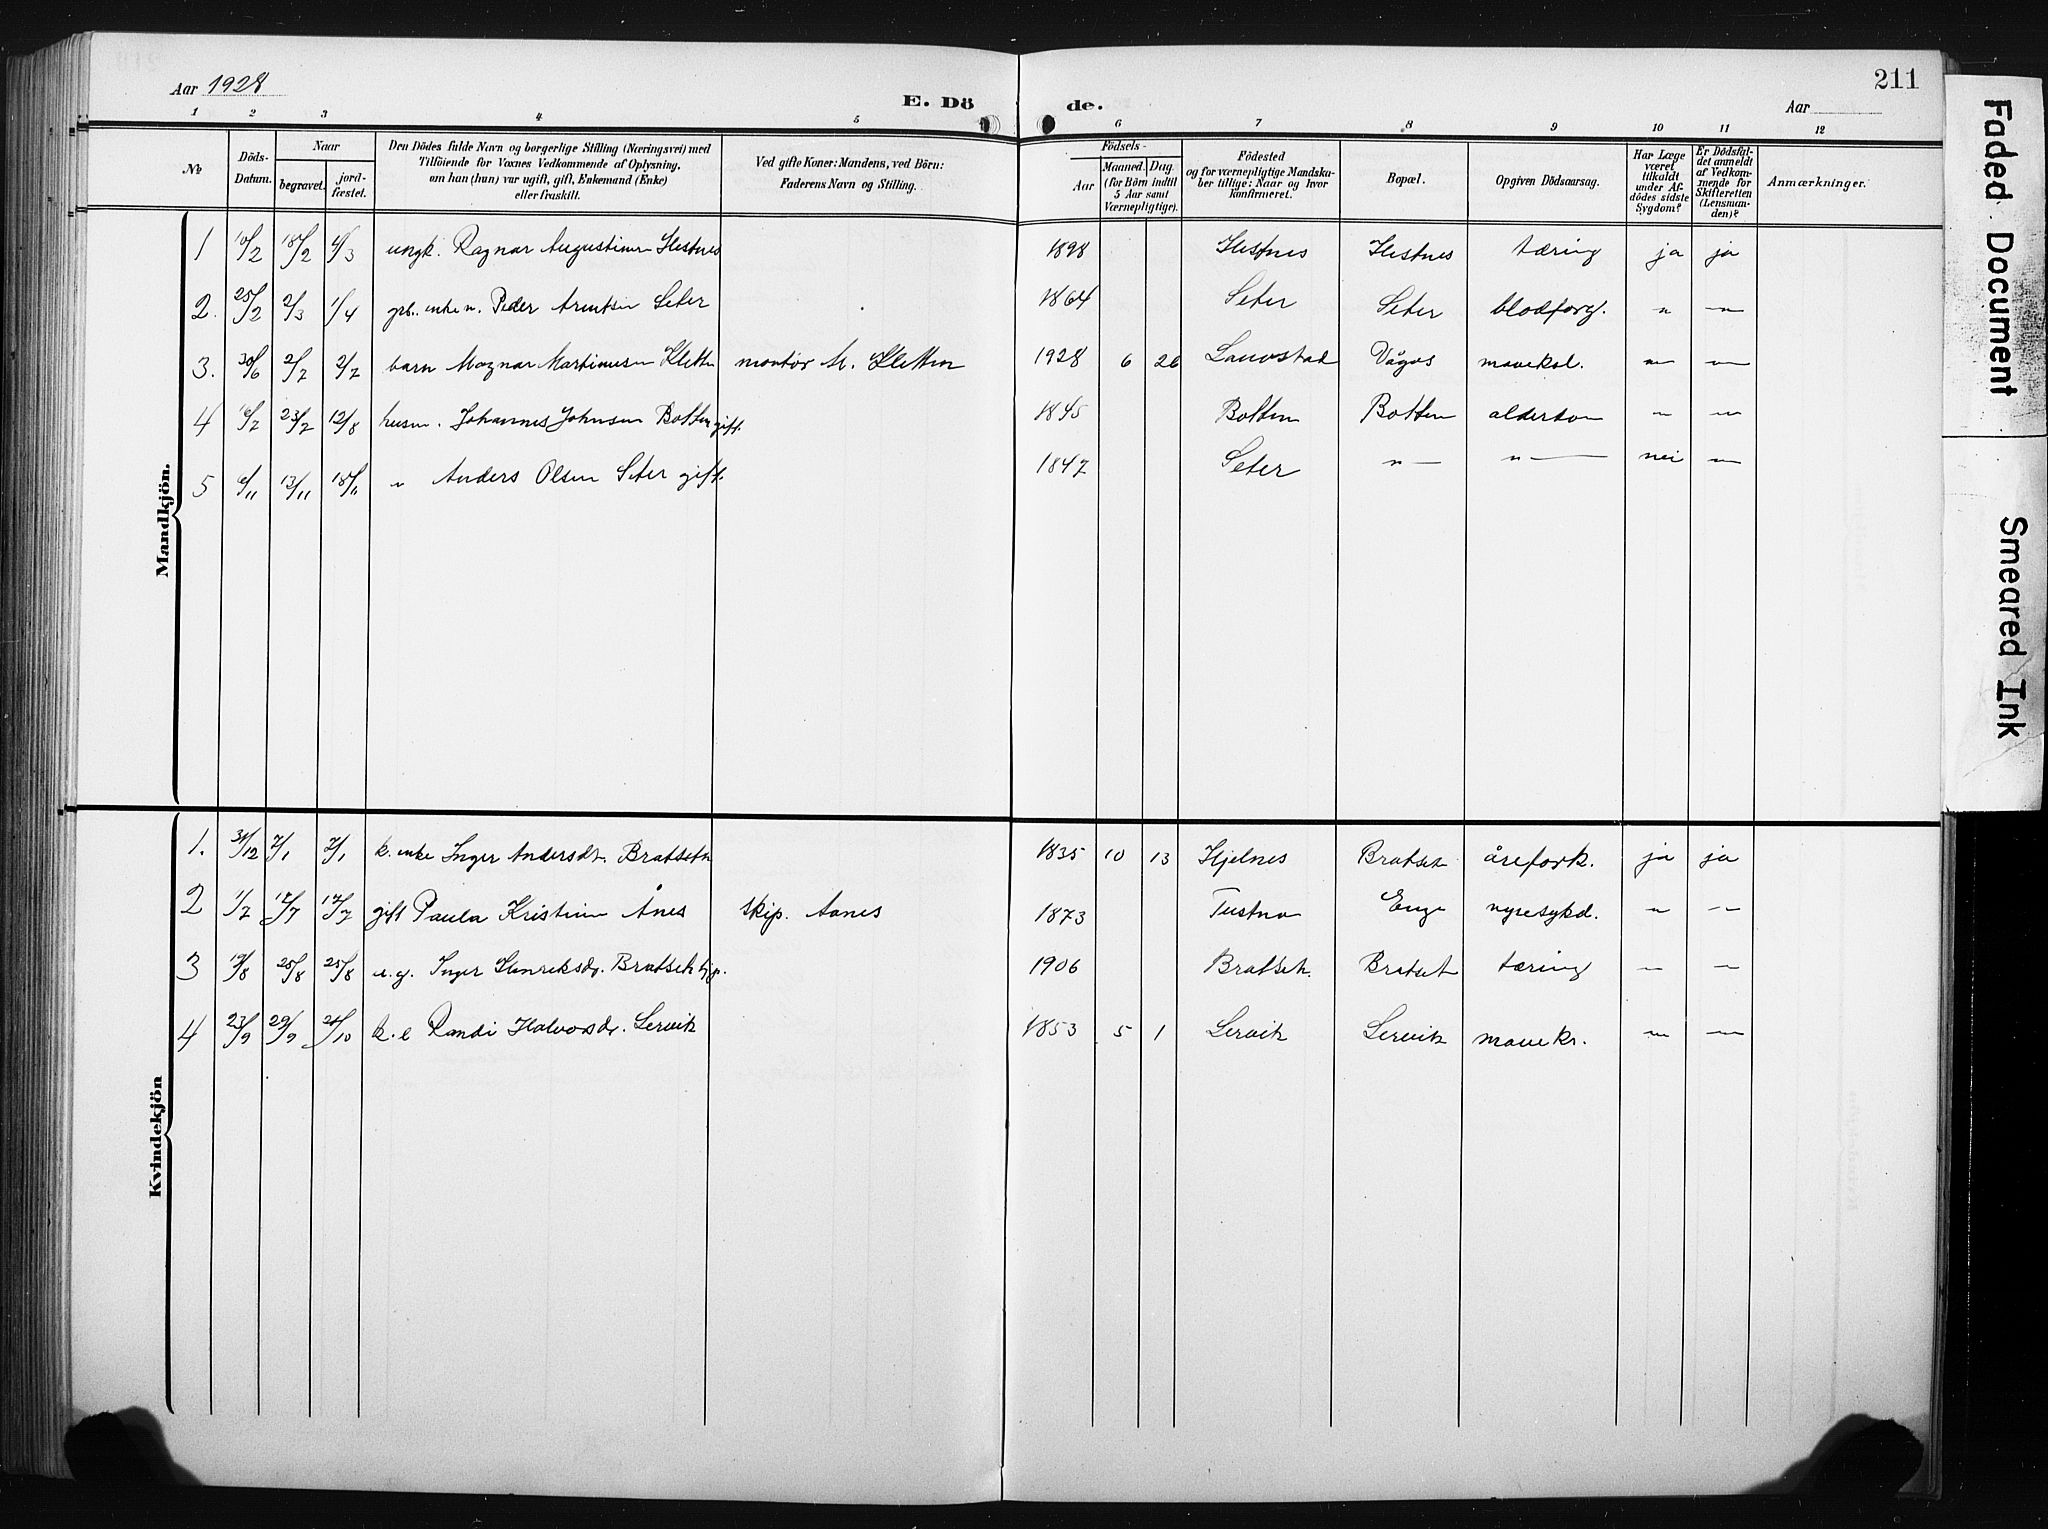 Aar 1928
E. Dö de.
Aar
211
1 2 3 4 5 6 7 8 9 10 11 12
№
Döds-Datum.
Naar
begravet.
jord-fæstet.
Den Dödes fulde Navn og borgerlige Stilling (Næringsvei) med
Tilföiende for Voxnes Vedkommende af Oplysning,
om han (hun) var ugift, gift, Enkemand (Enke)
eller fraskilt.
Ved gifte Koner: Mandens, ved Börn:
Faderens Navn og Stilling.
Födsels-
Aar
Maaned. Dag.
(for Börn indtil
5 Aar samt
Værnepligtige).
Födested
og for værnepligtige Mandska-
ber tillige: Naar og hvor
konfirmeret.
Bopæl.
Opgiven Dödsaarsag.
Har Læge
været
tilkaldt
under Af-
dödes sidste
Sygdom?
Er Dödsfal-
det anmeldt
af Vedkom-
mende for
Skifteretten
(Lensman-
den)?
Anmærkninger.
Mandkjön.
1 10/2 18/2 4/3 ungk. Ragnar Augustinsen Hestnes 1898 Hestnes Hestnes tæring ja ja
2. 25/2 2/3 1/4 Peder Arentsen Seter 1864 Seter Seter blodforg. " —"—
3. 30/6 2/7 2/7 barn Magnar Martinusen Kletten montør M. Kletten 1928 6 26 Laurstad Vågos —"— —"—
4 16/7 23/7 12/8 husm. Johannes Johnsen Botten gift. 1845 Botten Botten alderdom —"— —"—
5 6/11 13/11 18/11 " Anders Olsen Seter gift. 1847 Seter —"— —"— nei —"—
Kvindekjön
1. 31/12 7/1 7/1 k. enke Inger Andersdt. Bratseth 1835 10 13 Hjelnes Bratset årefork. ja ja
2 1/7 12/7 12/7 gift Paula Kristine Ånes skip. Aanes 1873 Tustna Enge nyresykd. —"— —"—
3 19/8 25/8 25/8 Inger Henriksdr. Bratseth 1906 Bratset. Bratset tæring —"— —"—
4 23/9 29/9 21/10 k. e Randi Halvorsdr. Lervik 1853 5 1 Lervik Lervik mavekr. —"— —"—
Faded Document
Smeared Ink